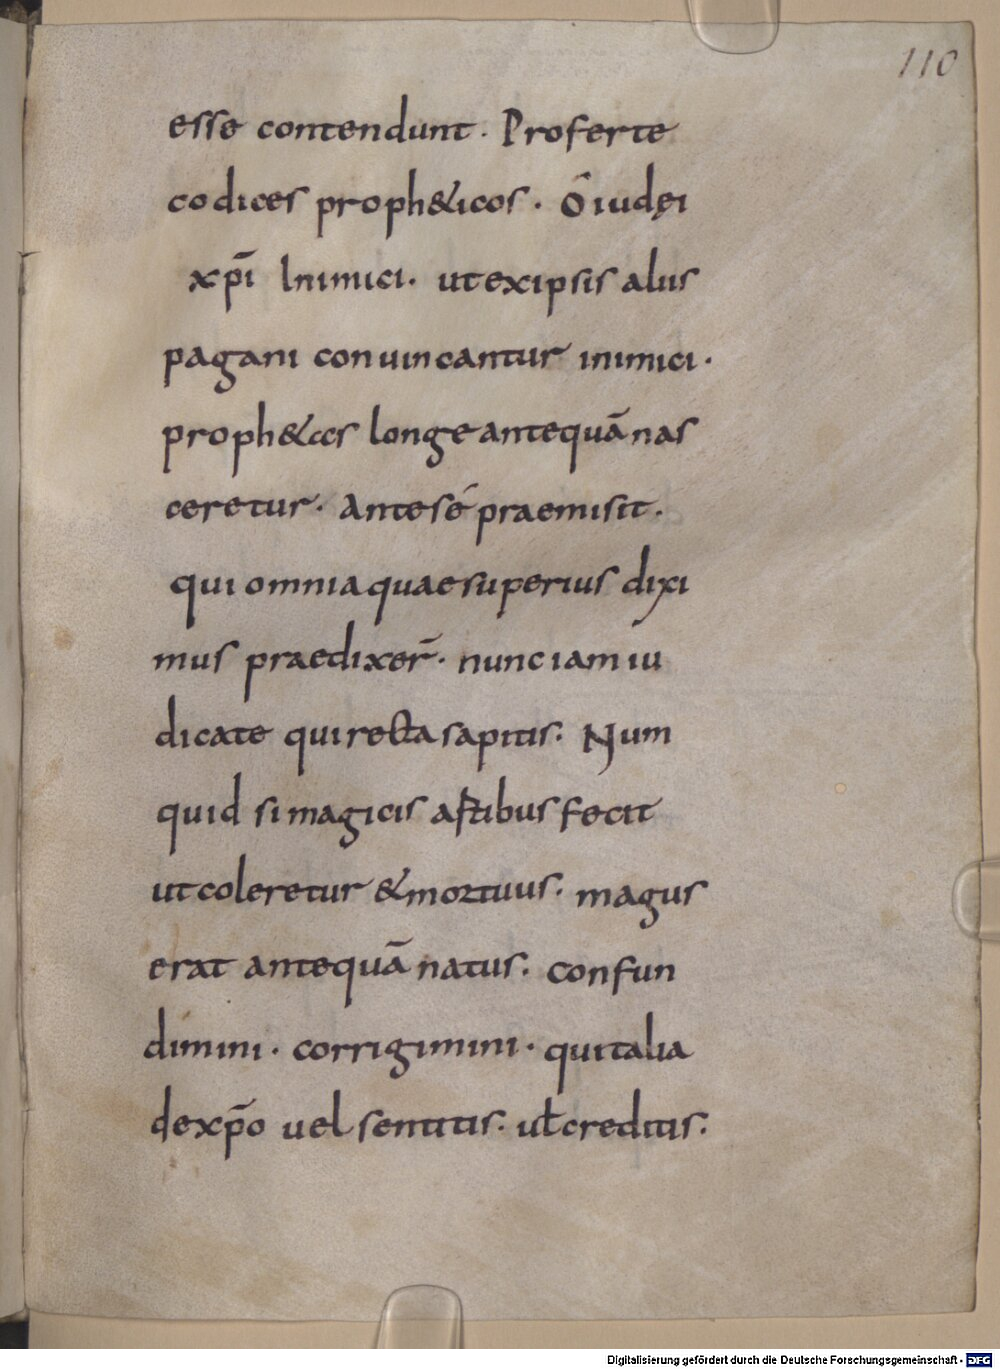 110
esse contendunt. Proferte
codices proph&icos. Ó iudęi
xp̄i Inimici. ut ex ipsis alus
pagani conuincantur inimici.
proph&ccs longe antequā nas
ceretur. Ante sé praemisit.
qui omnia quae superius dixi
mus praedixer̄. nunc iam iu
dicate qui recta sapitis. Num
quid si magicis artibus fecit
ut coleretur & mortuus. magus
erat antequā natus. confun
dimini. corrigimini. qui talia
de xp̄o uel sentitis. uł creditis.
Digitalisierung gefördert durch die Deutsche Forschungsgemeinschaft - DFG